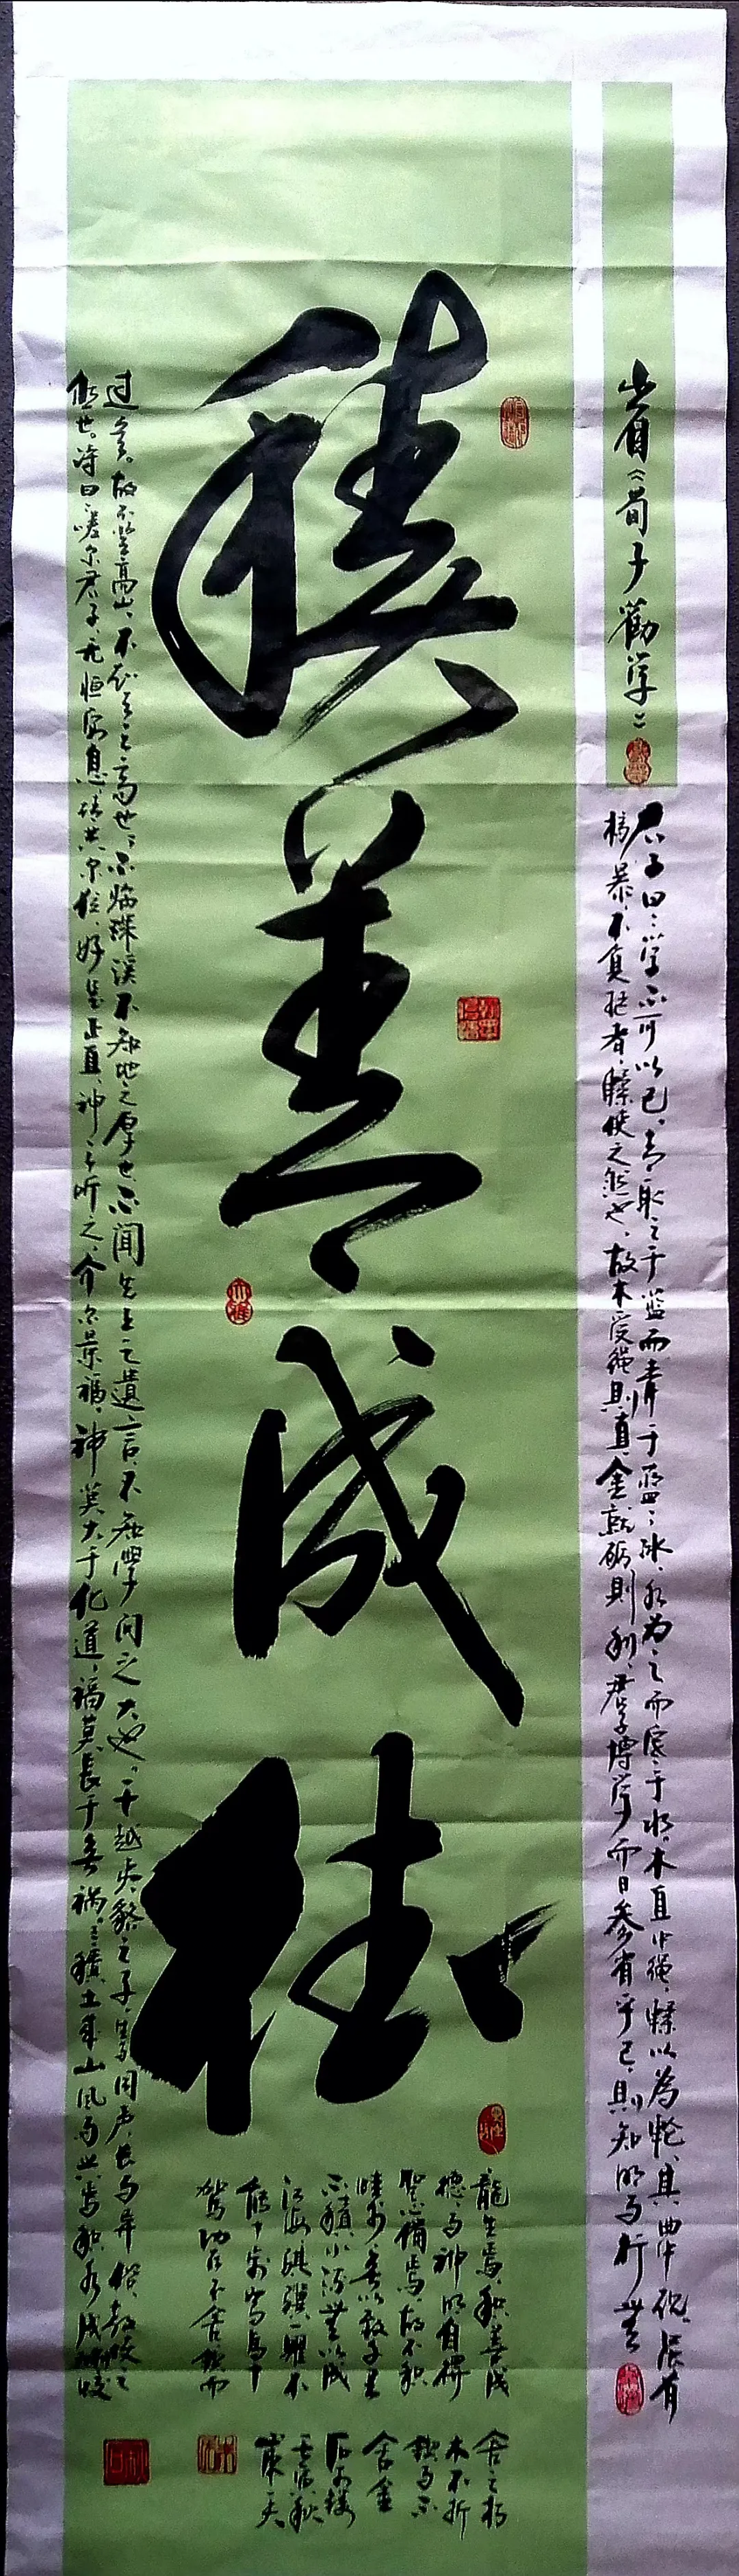 出自《荀子勸学》
君子曰：学不可以已。青，取之于蓝而青于蓝；冰，水为之而寒于水。木直中绳，以為轮，其曲中规，虽有
槁暴，不复挺者，使之然也。故木受绳則直，金就砺則利，君子博学而日参省乎己，則知明而行無
積善成德
过矣。故不登高山，不知天之高也；不临深溪不知地之厚也；不闻先王之遺言，不知學问之大也。干越夷貉之子，生而同声，长而异俗，教使之
然也。诗曰：嗟尔君子，无恒安息，靖共尔位，好是正直，神之听之，介尔景福。神莫大于化道，福莫長于無祸。積土成山，风雨興焉，积水成渊，蛟
龍生焉，积善成
德，而神明自得，
聖心備焉。故不积
跬步，無以致千里，
不積小流，無以成
江海。骐骥一躍，不
能十步，驽马十
驾，功在不舍。锲而
舍之，朽
木不折，
锲而不
舍，金
石可镂